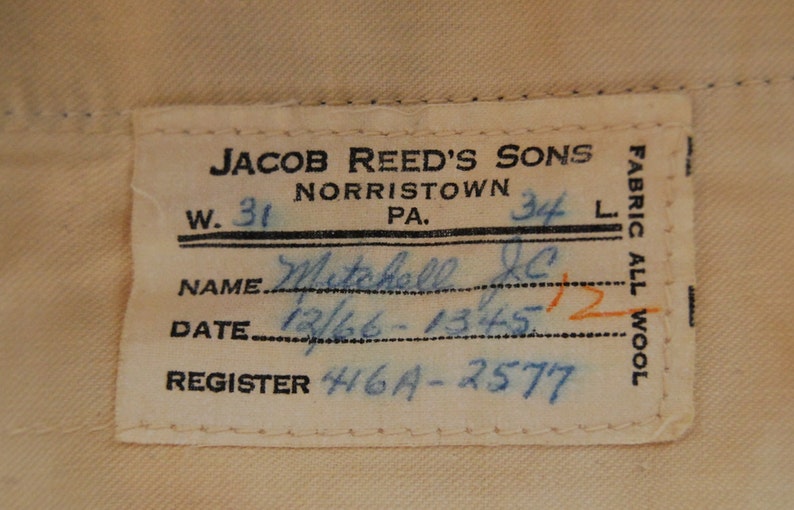 JACOB REED'S SONS
NORRISTOWN
W. 31 PA. 34 L.
NAME Mitchell J.C.
DATE 12/66-1345
12
REGISTER 416A-2577
FABRIC ALL WOOL